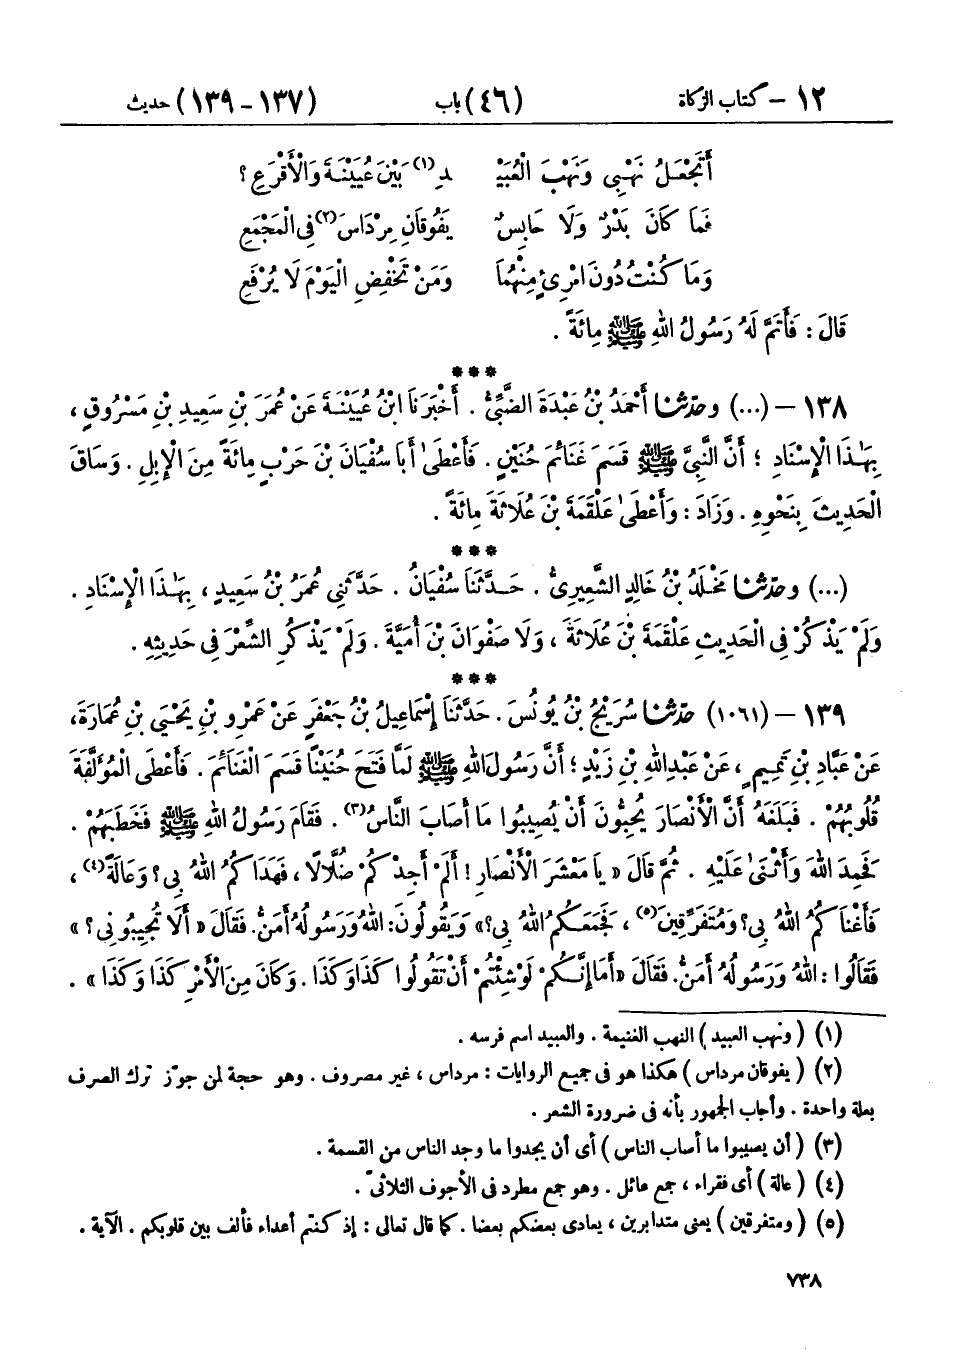 ١٢ – كتاب الزكاة (٤٦) باب (١٣٧ – ١٣٩) حديث
أَتَجْعَلُ نَهْبِى وَنَهْبَ الْعُبَيْـ ـدِ(١) بَيْنَ عُيَيْنَةَ وَالْأَقْرَعِ ؟
فَمَا كَانَ بَدْرٌ وَلَا حَابِسٌ يَفُوقَانِ مِرْدَاسَ(٢) فِى الْمَجْمَعِ
وَمَا كُنْتُ دُونَ امْرِئٍ مِنْهُمَا وَمَنْ تَخْفِضِ الْيَوْمَ لَا يُرْفَعِ
قَالَ : فَأَتَمَّ لَهُ رَسُولُ اللهِ ﷺ مِائَةً .
***
١٣٨ – (...) وحَدَّثَنَا أَحْمَدُ بْنُ عَبْدَةَ الضَّبِّىُّ . أَخْبَرَنَا ابْنُ عُيَيْنَةَ عَنْ عُمَرَ بْنِ سَعِيدِ بْنِ مَسْرُوقٍ ،
بِهَٰذَا الْإِسْنَادِ ؛ أَنَّ النَّبِيَّ ﷺ قَسَمَ غَنَائِمَ حُنَيْنٍ . فَأَعْطَىٰ أَبَا سُفْيَانَ بْنَ حَرْبٍ مِائَةً مِنَ الْإِبِلِ . وَسَاقَ
الْحَدِيثَ بِنَحْوِهِ . وَزَادَ : وَأَعْطَىٰ عَلْقَمَةَ بْنَ عُلَاثَةَ مِائَةً .
***
(...) وحَدَّثَنَا مَخْلَدُ بْنُ خَالِدٍ الشَّعِيرِىُّ . حَدَّثَنَا سُفْيَانُ . حَدَّثَنِي عُمَرُ بْنُ سَعِيدٍ ، بِهَٰذَا الْإِسْنَادِ .
وَلَمْ يَذْكُرْ فِى الْحَدِيثِ عَلْقَمَةَ بْنَ عُلَاثَةَ ، وَلَا صَفْوَانَ بْنَ أُمَيَّةَ . وَلَمْ يَذْكُرِ الشِّعْرَ فِى حَدِيثِهِ .
***
١٣٩ – (١٠٦١) حَدَّثَنَا سُرَيْجُ بْنُ يُونُسَ . حَدَّثَنَا إِسْمَاعِيلُ بْنُ جَعْفَرٍ عَنْ عَمْرِو بْنِ يَحْيَىٰ بْنِ عُمَارَةَ ،
عَنْ عَبَّادِ بْنِ تَمِيمٍ ، عَنْ عَبْدِ اللهِ بْنِ زَيْدٍ ؛ أَنَّ رَسُولَ اللهِ ﷺ لَمَّا فَتَحَ حُنَيْنًا قَسَمَ الْغَنَائِمَ . فَأَعْطَى الْمُؤَلَّفَةَ
قُلُوبُهُمْ . فَبَلَغَهُ أَنَّ الْأَنْصَارَ يُحِبُّونَ أَنْ يُصِيبُوا مَا أَصَابَ النَّاسُ(٣) . فَقَامَ رَسُولُ اللهِ ﷺ فَخَطَبَهُمْ .
فَحَمِدَ اللهَ وَأَثْنَىٰ عَلَيْهِ . ثُمَّ قَالَ « يَا مَعْشَرَ الْأَنْصَارِ ! أَلَمْ أَجِدْكُمْ ضُلَّالًا ، فَهَدَاكُمُ اللهُ بِى ؟ وَعَالَةً(٤) ،
فَأَغْنَاكُمُ اللهُ بِى ؟ وَمُتَفَرِّقِينَ(٥) ، فَجَمَعَكُمُ اللهُ بِى ؟ » وَيَقُولُونَ : اللهُ وَرَسُولُهُ أَمَنُّ . فَقَالَ « أَلَا تُجِيبُونِى ؟ »
فَقَالُوا : اللهُ وَرَسُولُهُ أَمَنُّ . فَقَالَ « أَمَا إِنَّكُمْ لَوْ شِئْتُمْ أَنْ تَقُولُوا كَذَا وَكَذَا . وَكَانَ مِنَ الْأَمْرِ كَذَا وَكَذَا » .
(١) ( ونهب العبيد ) النهب الغنيمة . والعبيد اسم فرسه .
(٢) ( يفوقان مرداس ) هكذا هو فى جميع الروايات : مرداس ، غير مصروف . وهو حجة لمن جوّز ترك الصرف
بعلة واحدة . وأجاب الجمهور بأنه فى ضرورة الشعر .
(٣) ( أن يصيبوا ما أصاب الناس ) أى أن يجدوا ما وجد الناس من القسمة .
(٤) ( عالة ) أى فقراء ، جمع عائل . وهو جمع مطرد فى الأجوف الثلاثىّ .
(٥) ( ومتفرقين ) يعنى متدابرين ، يعادى بعضكم بعضا . كما قال تعالى : إذ كنتم أعداء فألف بين قلوبكم . الآية .
٧٣٨